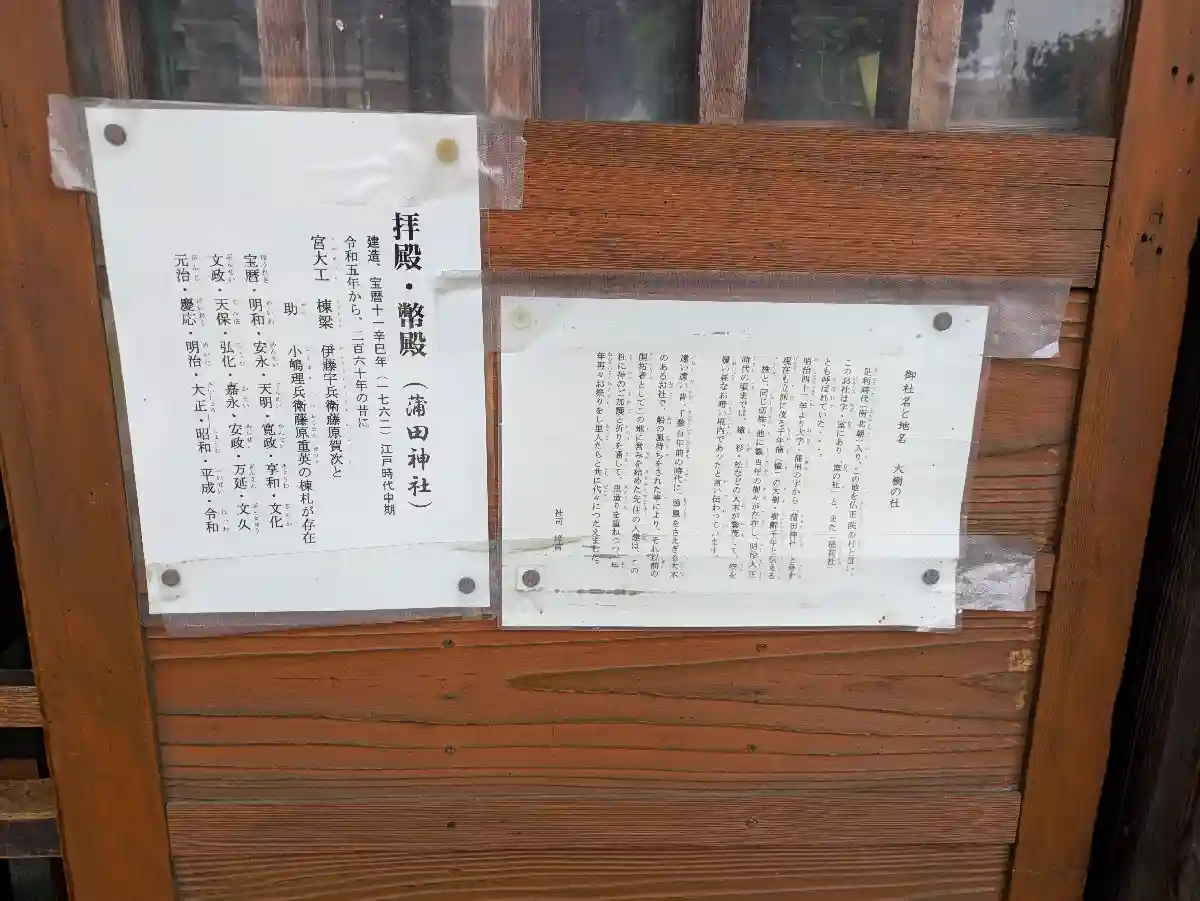 拝殿・幣殿(蒲田神社)
建造、宝暦十一辛巳年(一七六一)江戸時代中期
令和五年から、二百六十年の昔に
宮大工 棟梁 伊藤宇兵衛藤原賀次と
助 小嶋理兵衛藤原重英の棟札が存在
宝暦・明和・安永・天明・寛政・享和・文化
文政・天保・弘化・嘉永・安政・万延・文久
元治・慶応・明治・大正・昭和・平成・令和
御社名と地名 大樹の社
足利時代(南北朝)入り、この地を仏正院の村と言い、
このお社は字・宮にあり
とも呼ばれていた・・
明治四十一年より大字・蒲田の字から「蒲田神社」と号す
現在も立派に茂る千年楠(樟)の大樹・樹齢千年と伝える
一株と、同じ切株、他に数百年の樹々が存在し、明治大正
時代の頃までは、楠・杉・松などの大木が繁茂して、昼を
境内であったと言い伝わっています。
遠い遠い昔、千数百年前の時代に、強風をさえぎる大木
のあるお社で、船の風待ちをされた事により、それ以前の
開拓者としてこの地に営みを始めた先住の人達は、この
社に神のご加護と祈りを通して、里造りを重ねつつ、一年
年再々お祭りを七里人たちと共に代々につたえました。
社司